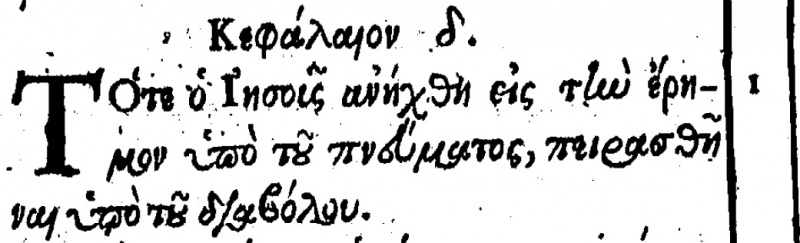 Κεφάλαιον δ.
Τότε ὁ Ἰησοῦς ἀνήχθη εἰς τὴν ἔρη- 1
μον ὑπὸ τοῦ πνεύματος, πειρασθῆ
ναι ὑπὸ τοῦ διαβόλου.